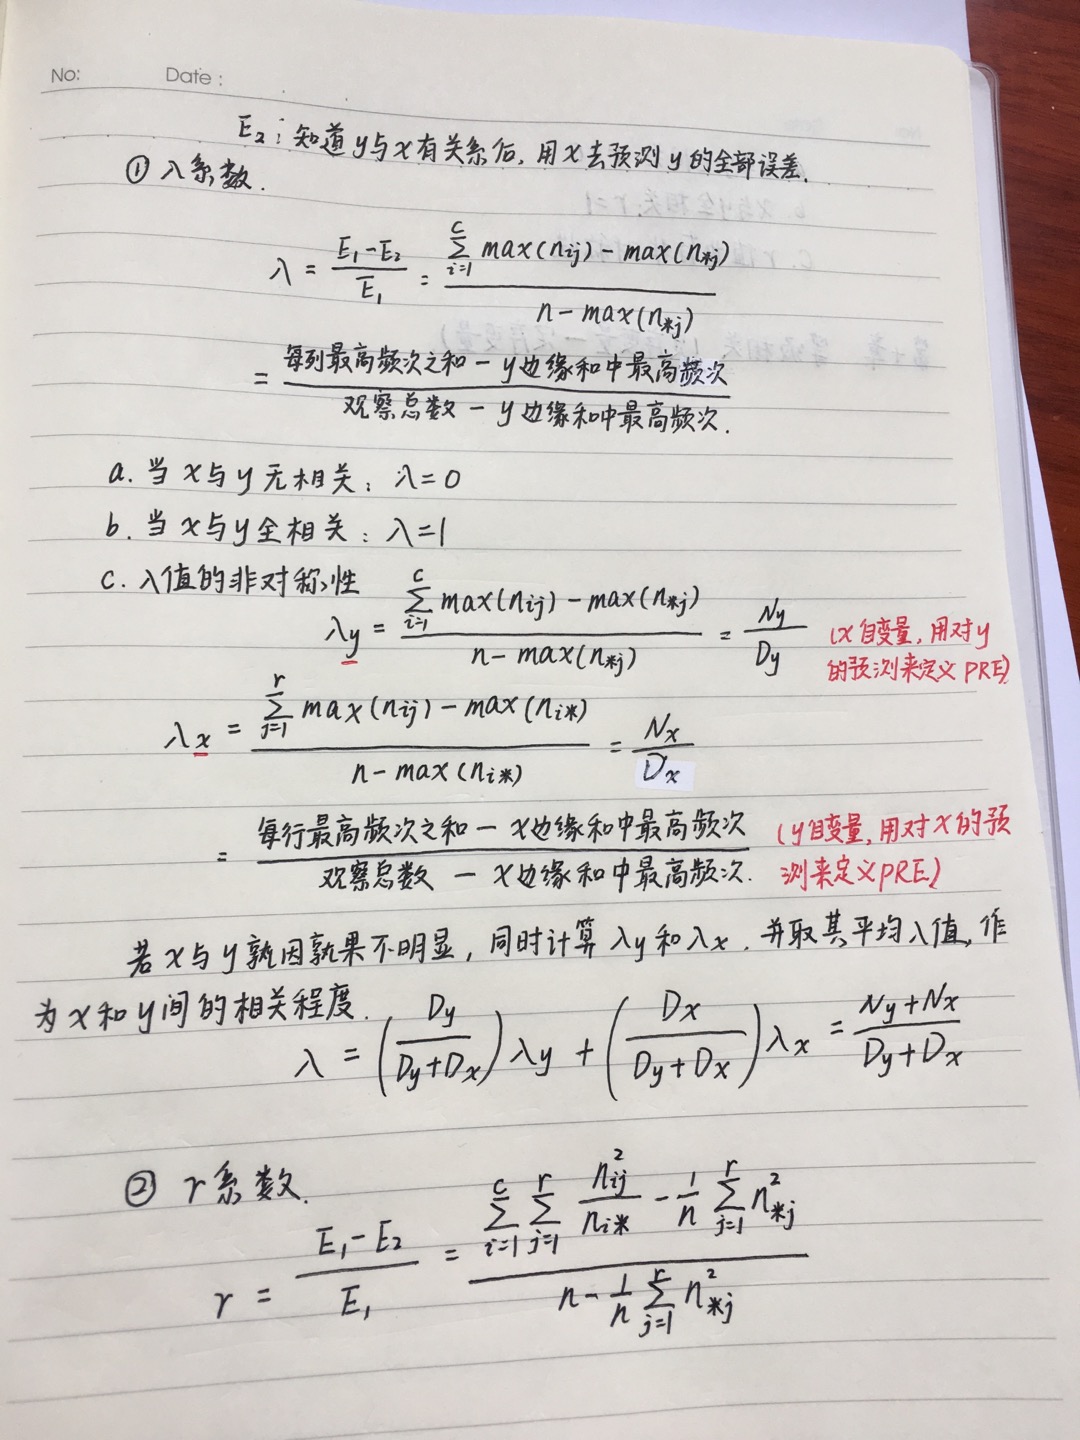 No: Date :
E₂：知道y与x有关系后，用x去预测y的全部误差.
① λ系数.
λ = (E₁-E₂)/E₁ = (∑_{i=1}^{c} max(n_{ij}) - max(n_{*j}))/(n - max(n_{*j}))
= (每列最高频次之和 - y边缘和中最高频次)/(观察总数 - y边缘和中最高频次.)
a. 当x与y无相关：λ=0
b. 当x与y全相关：λ=1
c. λ值的非对称性
λy = (∑_{i=1}^{c} max(n_{ij}) - max(n_{*j}))/(n - max(n_{*j})) = Ny/Dy (x自变量，用对y
的预测来定义PRE)
λx = (∑_{j=1}^{r} max(n_{ij}) - max(n_{i*}))/(n - max(n_{i*})) = Nx/Dx
= (每行最高频次之和 - x边缘和中最高频次)/(观察总数 - x边缘和中最高频次.) (y自变量，用对x的预
测来定义PRE)
若x与y孰因孰果不明显，同时计算λy和λx，并取其平均λ值，作
为x和y间的相关程度.
λ = (Dy/(Dy+Dx))λy + (Dx/(Dy+Dx))λx = (Ny+Nx)/(Dy+Dx)
② r系数.
r = (E₁-E₂)/E₁ = (∑_{i=1}^{c} ∑_{j=1}^{r} n²_{ij}/n_{i*} - 1/n ∑_{j=1}^{r} n²_{*j})/(n - 1/n ∑_{j=1}^{r} n²_{*j})